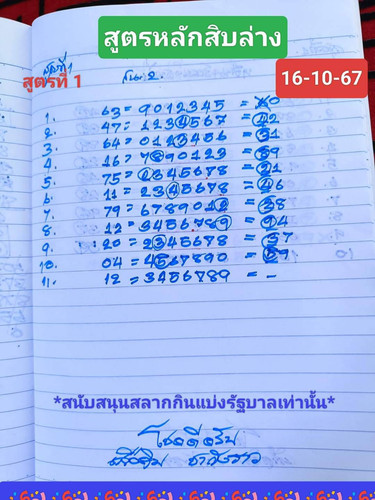 สูตรหลักสิบล่าง
สูตรที่ 1
สูตรที่ 1
16-10-67
1. 63 = 9012345 = 60
2. 47 = 1234567 = 42
3. 64 = 0123456 = 31
4. 16 = 7890123 = 89
5. 75 = 2345678 = 21
6. 11 = 2345678 = 46
7. 79 = 6789012 = 38
8. 12 = 3456789 = 94
9. 20 = 2345678 = 37
10. 04 = 4567890 = 59
11. 12 = 3456789 = -
*สนับสนุนสลากกินแบ่งรัฐบาลเท่านั้น*
โชคดีครับ